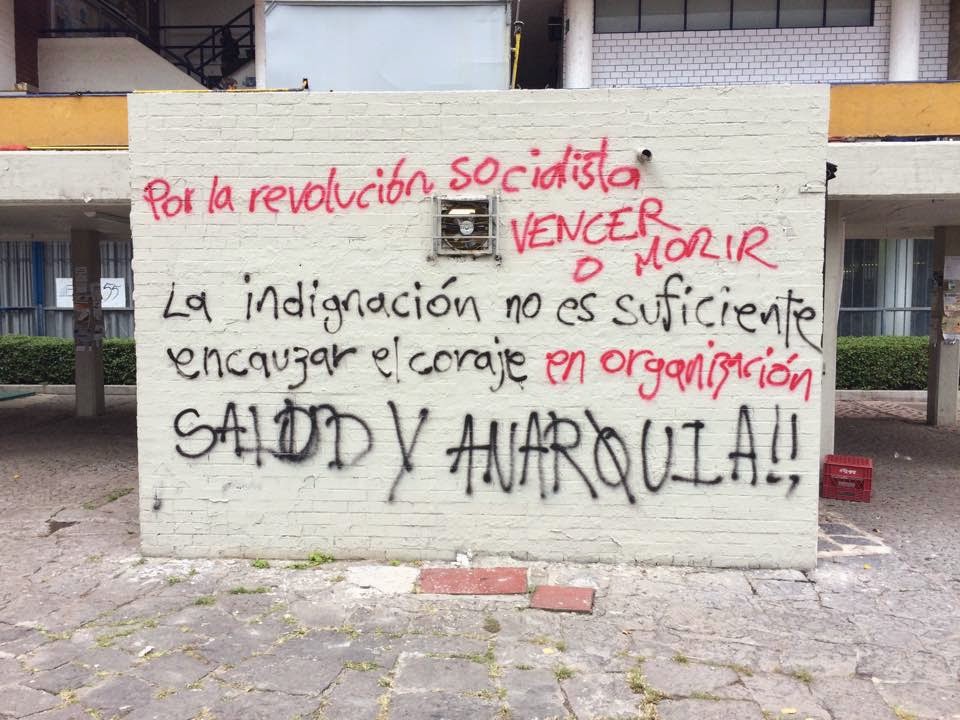 Por la revolución socialista
VENCER
O MORIR
La indignación no es suficiente
encauzar el coraje en organización
SALUD Y ANARQUIA!!